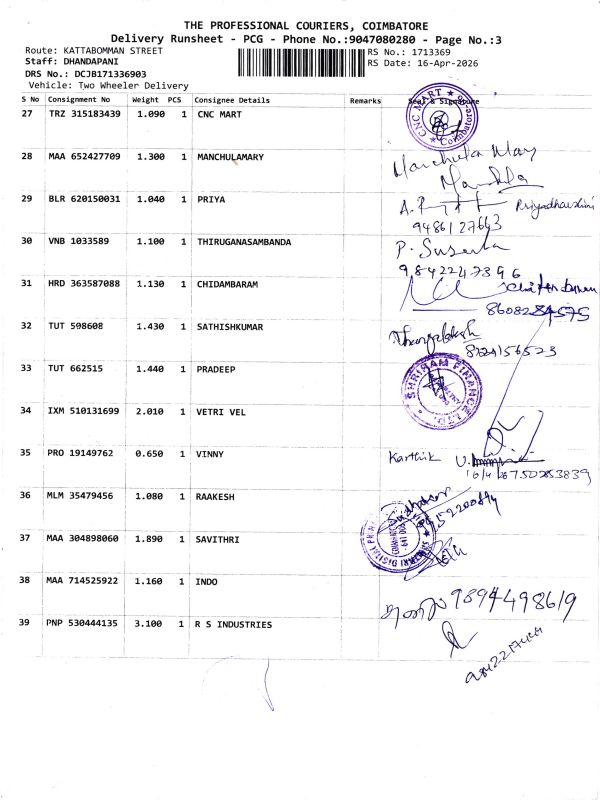 THE PROFESSIONAL COURIERS, COIMBATORE
Delivery Runsheet - PCG - Phone No.:9047080280 - Page No.:3
Route: KATTABOMMAN STREET
RS No.: 1713369
Staff: DHANDAPANI
RS Date: 16-Apr-2026
DRS No.: DCJB171336903
Vehicle: Two Wheeler Delivery
S No Consignment No Weight PCS Consignee Details Remarks Seal & Signature
27 TRZ 315183439 1.090 1 CNC MART
CNC MART Coimbatore
28 MAA 652427709 1.300 1 MANCHULAMARY
Manchula Mary
29 BLR 620150031 1.040 1 PRIYA
Priyadharshini
9486127663
30 VNB 1033589 1.100 1 THIRUGANASAMBANDA
P. Suseela
9842247396
31 HRD 363587088 1.130 1 CHIDAMBARAM
32 TUT 598608 1.430 1 SATHISHKUMAR
33 TUT 662515 1.440 1 PRADEEP
SHRIRAM FINANCE LTD.
34 IXM 510131699 2.010 1 VETRI VEL
35 PRO 19149762 0.650 1 VINNY
Karthik
36 MLM 35479456 1.080 1 RAAKESH
37 MAA 304898060 1.890 1 SAVITHRI
38 MAA 714525922 1.160 1 INDO
9894498619
39 PNP 530444135 3.100 1 R S INDUSTRIES